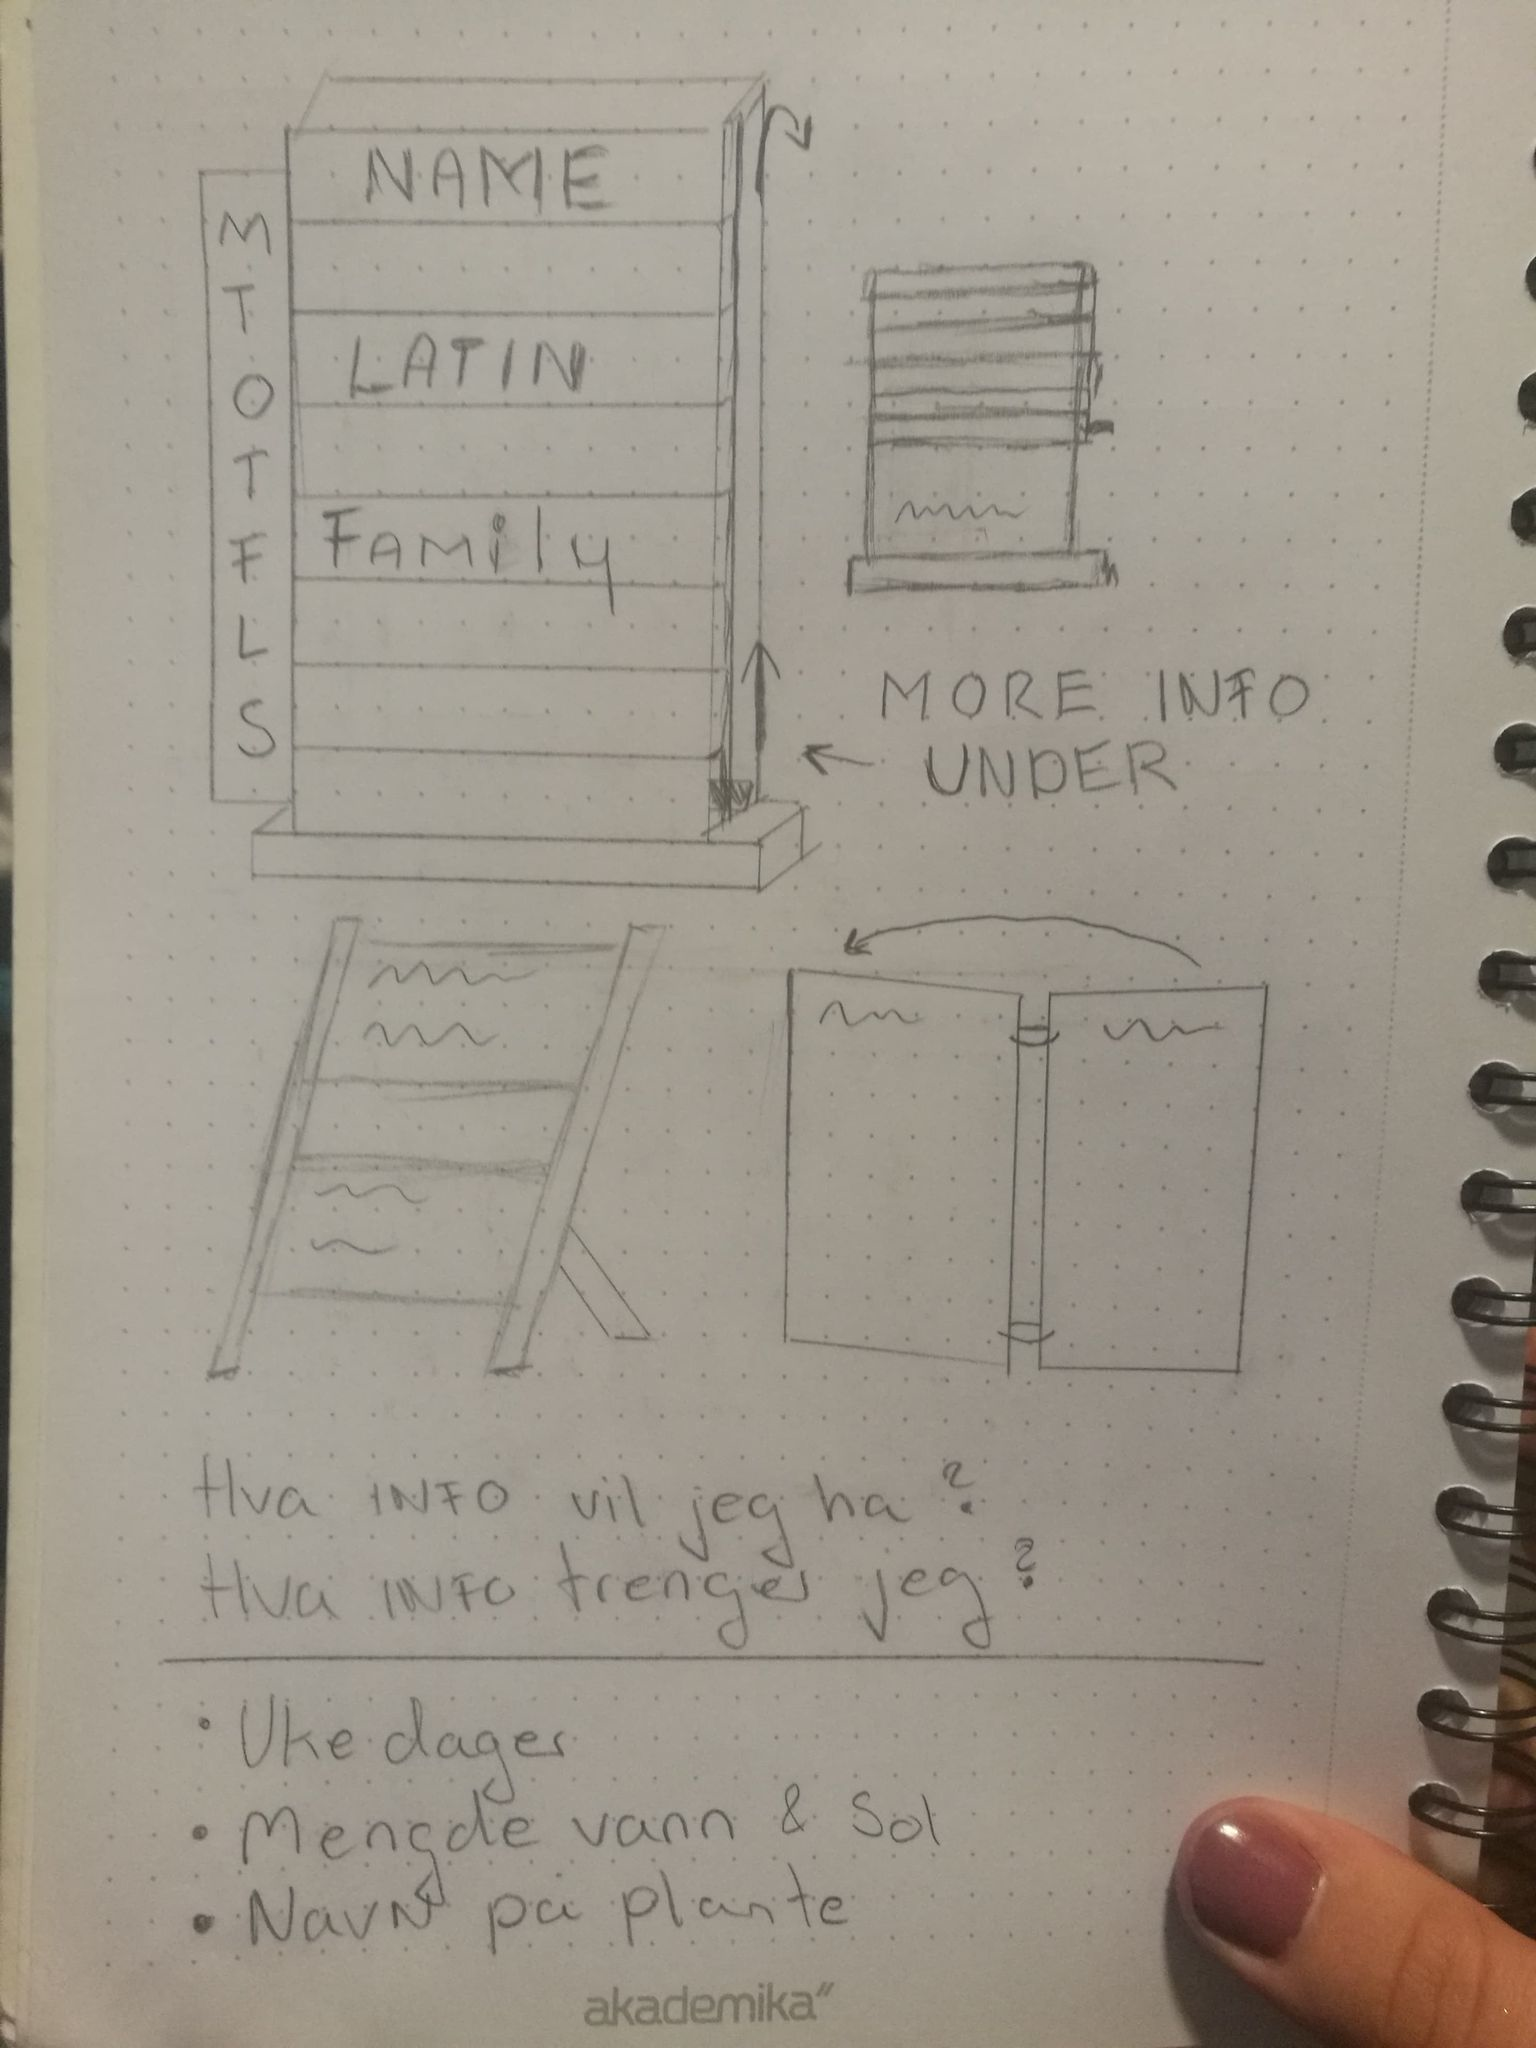 NAME
M
T
O
T
F
L
S
LATIN
Family
MORE INFO
UNDER
Hva INFO vil jeg ha?
Hva INFO trenger jeg?
• Uke dager
• Mengde vann & Sol
• Navn på plante
akademika